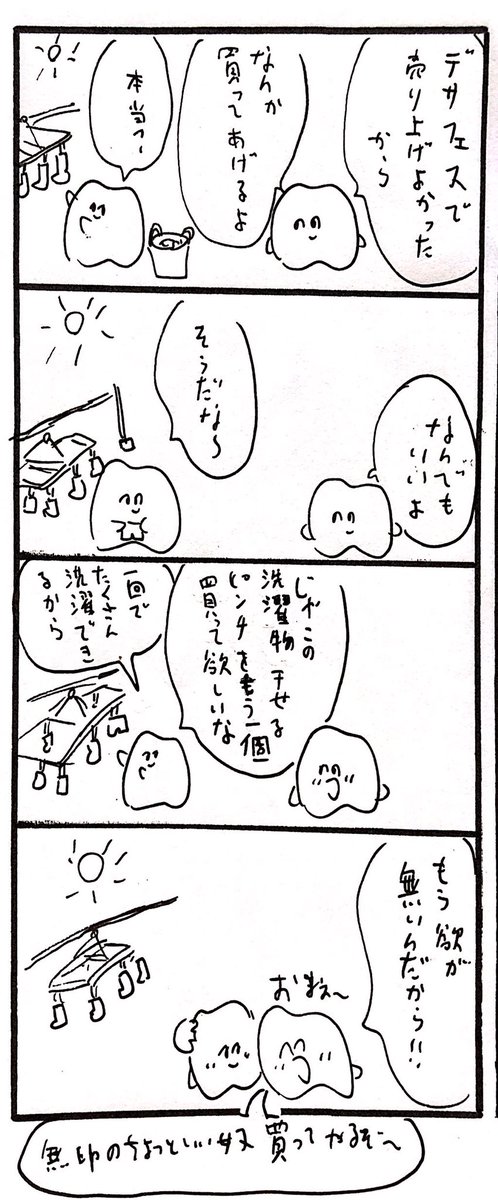 デザフェスで
売り上げよかった
から
なんか
買ってあげるよ
本当っ〜
なんでも
いいよ
そうだな〜
じゃこの
洗濯物 干せる
ピンチをもう一個
買って欲しいな
一回で
たくさん
洗濯でき
るから
もう欲が
無いんだから!!
おまえ〜
無印のちょっといい奴 買ってやるぞ〜